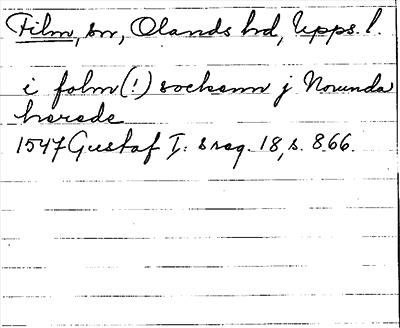 Film, sn, Olands hd, Upps. l.
i folm(!) sockenn j Norunda
herede
1547 Gustaf I: s reg. 18, s. 866.